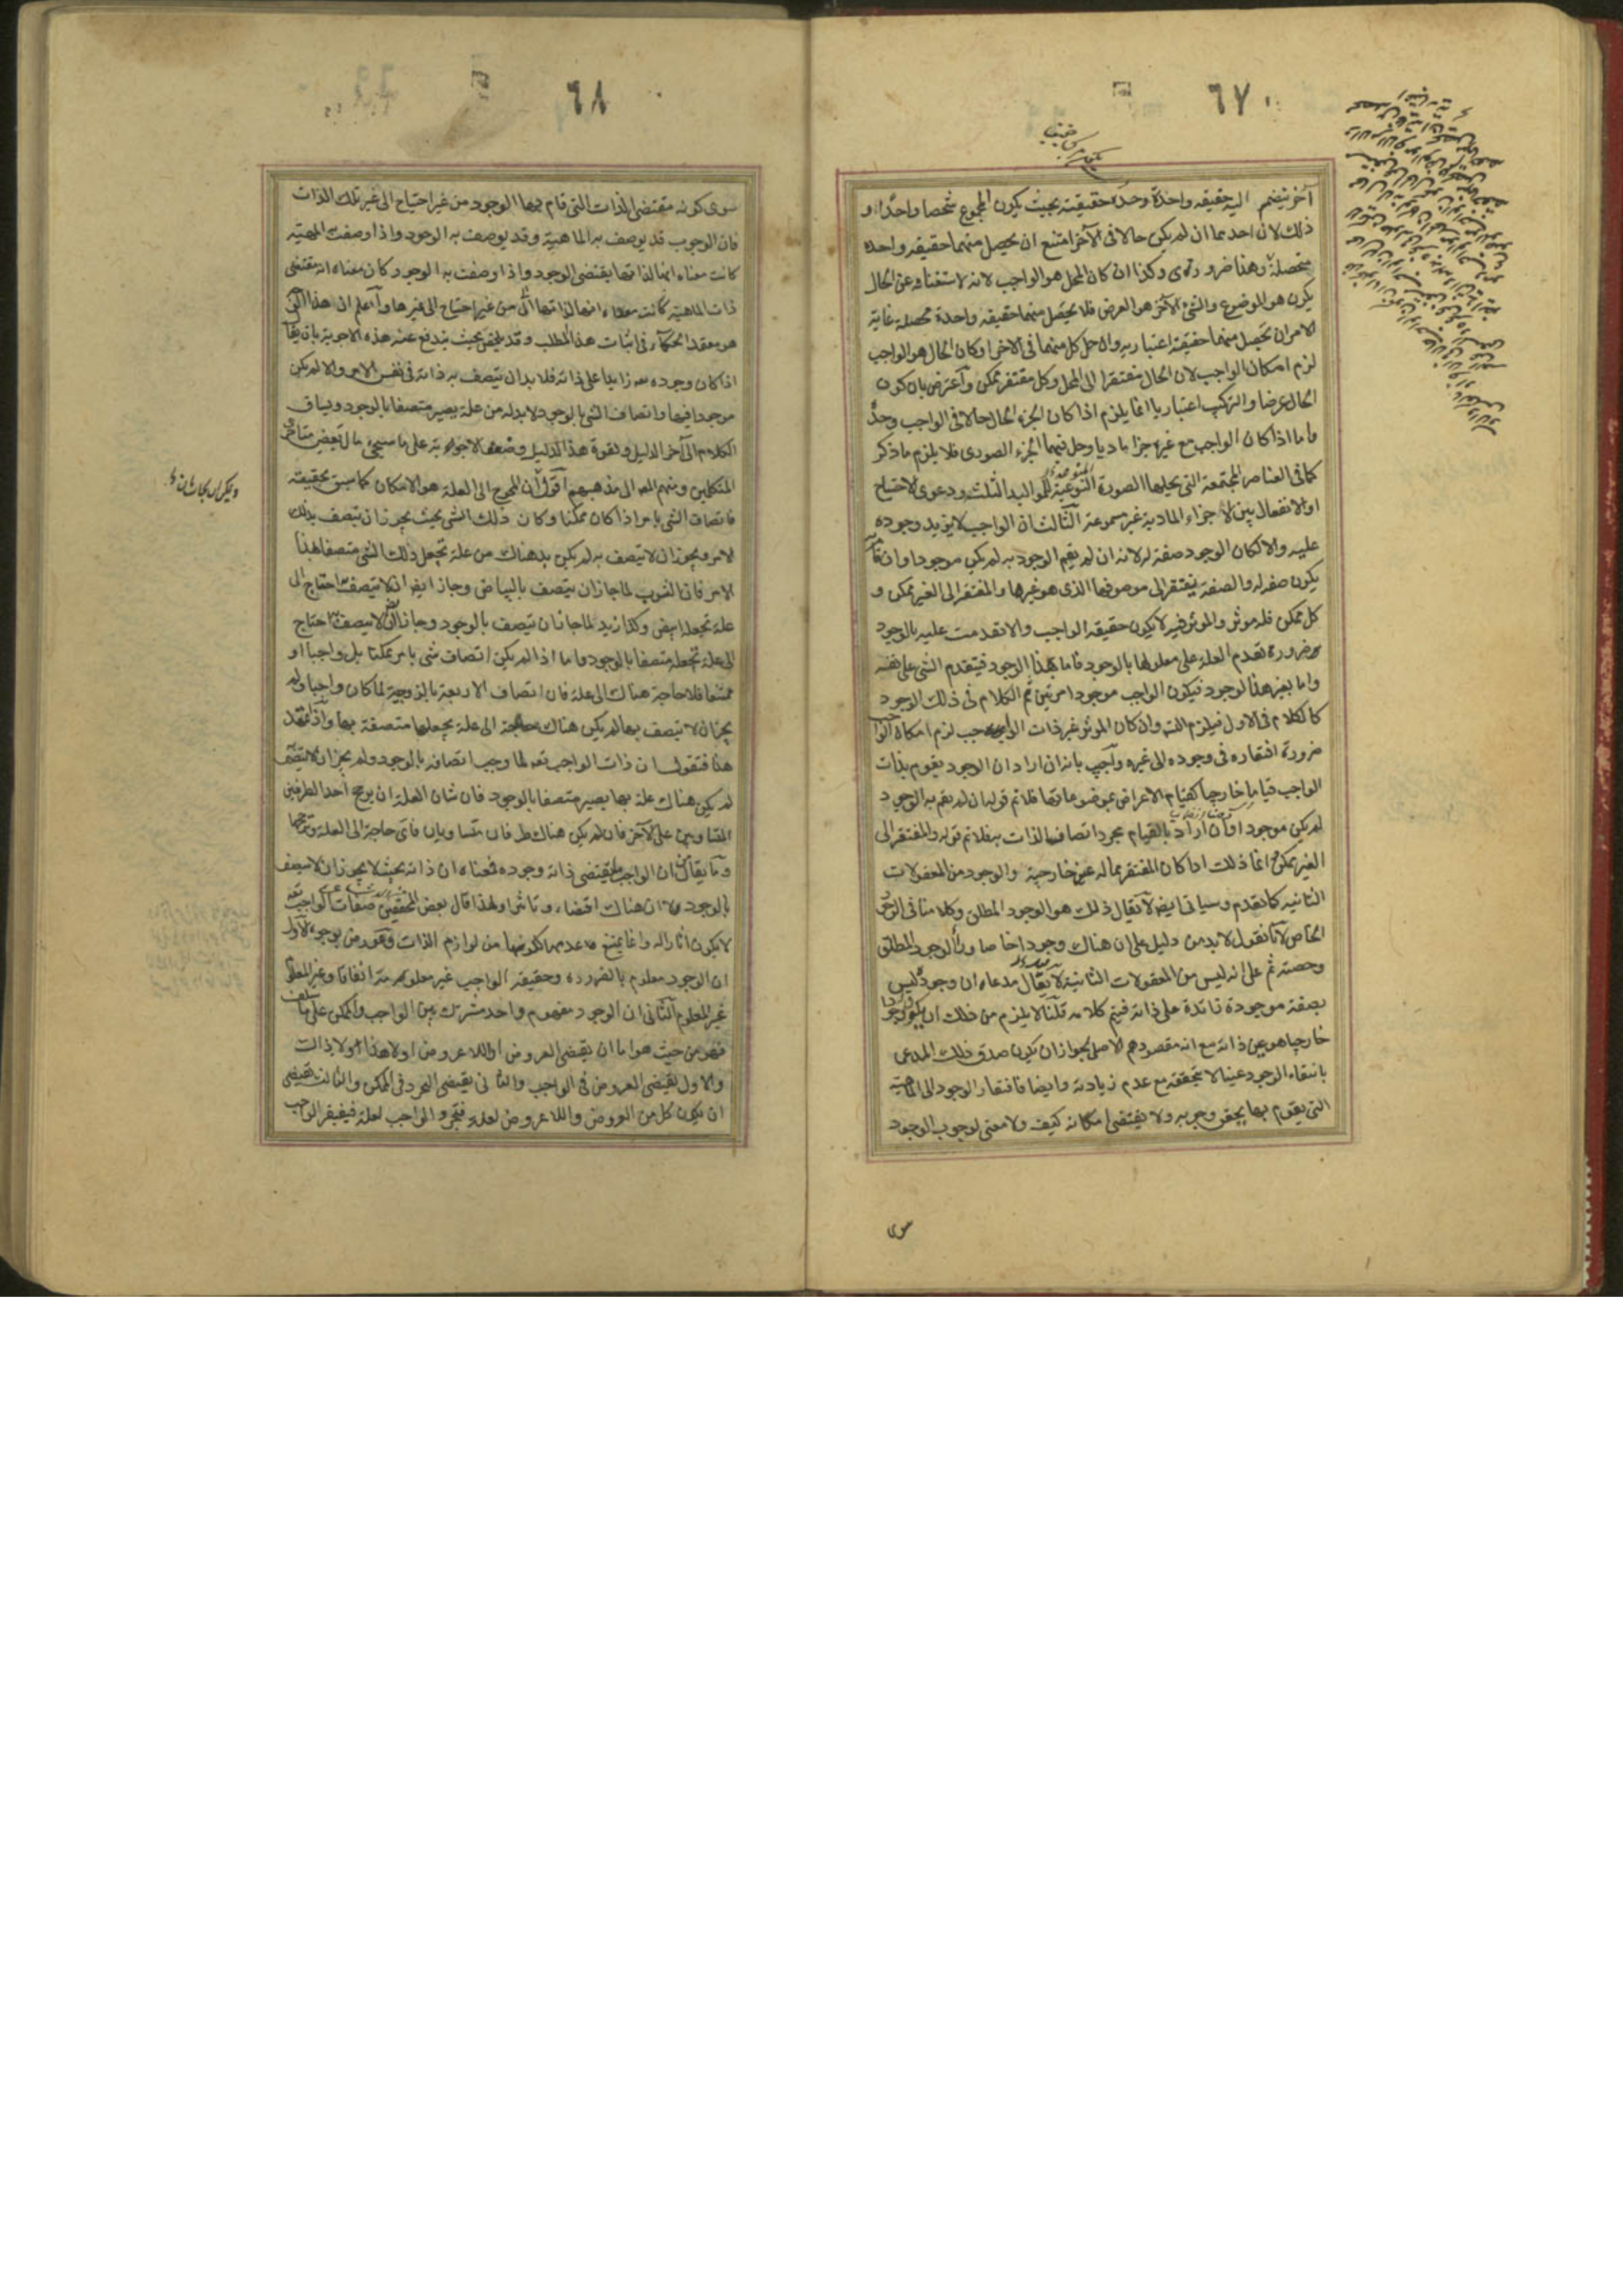 ٦٧
آخر ينضم اليه حقيقه واحدة وحدة حقيقته بحيث يكون المجموع شخصا واحدا و
ذلك لان احدهما ان لم يكن حالا فى الآخر امتنع ان يحصل منهما حقيقه واحده
متحصلة وهذا ضرورى وكذا ان كان المحل هو الواجب لانه لاستغنائه عن الحال
يكون هو الموضوع والشئ الآخر هو العرض فلا يحصل منهما حقيقه واحدة محصله غاية
الامر ان يحصل منهما حقيقة اعتباريه وان حل كل منهما فى الاخر او كان الحال هو الواجب
لزم امكان الواجب لان الحال مفتقرا الى المحل وكل مفتقر ممكن وآعترض بان كون
الحال عرضا والتركيب اعتباريا انما يلزم اذا كان الجزء الحال حالا فى الواجب وحده
واما اذا كان الواجب مع غيره جزا ماديا وحل فيهما الجزء الصورى فلا يلزم ما ذكر
كما فى العناصر المجتمعة التى يحلها الصورة النوعية للمواليد الثلث ودعوى الاحتياج
او الانفعال بين الاجزاء المادية غير مسموعة الثالث ان الواجب لا يزيد وجوده
عليه والا لكان الوجود صفة له لانه ان لم يقم الوجود به لم يكن موجودا وان قام
يكون صفه له والصفة يفتقر الى موصوفها الذى هو غيرها والمفتقر الى الغير ممكن و
كل ممكن فله موثر والموثر فيه لا يكون حقيقه الواجب والا تقدمت عليه بالوجود
ضرورة تقدم العلة على معلولها بالوجود فاما بهذا الوجود فيتقدم الشى على نفسه
واما بغير هذا الوجود فيكون الواجب موجودا مرتين ثم الكلام فى ذلك الوجود
كالكلام فى الاول فيلزم التسـ وان كان الموثر غير ذات الواجب لزم امكان الواجب
ضرورة افتقاره فى وجوده الى غيره وآجيب بانه ان اراد ان الوجود يقوم بذات
الواجب قياما خارجيا كقيام الاعراض بموضوعاتها فلا تم قوله ان لم يقم به الوجود
لم يكن موجودا وان اراد بالقيام مجرد اتصاف الذات به فلا تم قوله والمفتقر الى
الغير ممكن انما ذلك اذا كان المفتقر مما له عين خارجية والوجود من المعقولات
الثانيه كما تقدم وسياتى ايضا لا يقال ذلك هو الوجود المطلق وكلامنا فى الوجود
الخاص لانا نقول لا بد من دليل على ان هناك وجودا خاصا وراء الوجود المطلق
وحصته ثم على انه ليس من المعقولات الثانية لا يقال مدعاه ان وجوده ليس
بصفة موجودة زائدة على ذاته فيتم كلامه قلنا لا يلزم من ذلك ان يكون وجودا
خارجيا هو عين ذاته مع انه مقصودهم الاصلى لجواز ان يكون صدق ذلك المدعى
بانتفاء الوجود عينا لا بتحققه مع عدم زيادته وايضا فافتقار الوجود الى الماهية
التى يقوم بها يحقق وجوبه ولا يقتضى امكانه كيف ولا معنى لوجوب الوجود
سوى
٦٨
سوى كونه مقتضى الذات التى قام بها الوجود من غير احتياج الى غير تلك الذات
فان الوجوب قد يوصف به الماهية وقد يوصف به الوجود واذا وصفت به المهية
كانت معناه انها لذاتها يقتضى الوجود واذا وصفت به الوجود كان معناه انه مقتضى
ذات الماهية من غير احتياج الى غيرها وآعلم ان هذا الذى
هو معقد الحكماء فى اثبات هذا المطلب وقد يلخص بحيث يندفع عنه هذه الاجوبة بان يقال
اذا كان وجوده زايدا على ذاته فلا بد ان يتصف به ذاته فى نفس الامر والا لم يكن
موجودا فيها واتصاف الشى بالوجود لا بد له من علة يصير متصفا بالوجود ويساق
الكلام الى آخر الدليل ولقوة هذا الدليل وضعف الاجوبه على ما سيجئ مال بعض متاخرى
المتكلمين ومنهم المصـ الى مذهبهم آقول ان المحوج الى العلة هو الامكان كما سبق تحقيقه
فاتصاف الشى بامر اذا كان ممكنا وكان ذلك الشى بحيث يجوز ان يتصف بذلك
الامر ويجوز ان لا يتصف به لم يكن بد هناك من علة تجعل ذلك الشى متصفا بهذا
الامر فان الثوب لما جاز ان يتصف بالبياض وجاز ايضا ان لا يتصف به احتاج الى
علة تجعله ابيض وكذا زيد لما جاز ان يتصف بالوجود وجاز ان لا يتصف به احتاج
الى علة تجعله متصفا بالوجود واما اذا لم يكن اتصاف شى بامر ممكنا بل واجبا او
ممتنعا فلا حاجة هناك الى علة فان اتصاف الاربعة بالزوجية لما كان واجبا ولم
يجز ان لا يتصف بها لم يكن هناك حاجة الى علة يجعلها متصفة بها واذا تمهد
هذا فنقول ان ذات الواجب تعـ لما وجب اتصافه بالوجود ولم يجز ان لا يتصف
لم يكن هناك علة بها يصير متصفا بالوجود فان شان العلة ان يرجح احد الطرفين
المتساويين على الآخر فان لم يكن هناك طرفان متساويان فاى حاجة الى العلة وترجيحها
وما يقال ان الواجب يقتضى ذاته وجوده فمعناه ان ذاته بحيث لا يجوز ان لا يتصف
بالوجود لا ان هناك اقتضاء وتاثيرا ولهذا قال بعض المحققين صفات الواجب تعـ
لا يكون اثارا له وانما يمتنع عدمها لكونها من لوازم الذات وعورض بوجوه الاول
ان الوجود معلوم بالضرورة وحقيقة الواجب غير معلومة اتفاقا وغير المعلوم
غير المعلوم الثانى ان الوجود مفهوم واحد مشترك بين الواجب والممكن على ما سلف
فهو من حيث هو اما ان يقتضى العروض او اللاعروض او لا هذا او لا ذاك
والاول يقتضى العروض فى الواجب والثانى يقتضى التجرد فى الممكن والثالث يقتضى
ان يكون كل من العروض واللاعروض لعلة فتجرد الواجب لعلة فيفتقر الواجب